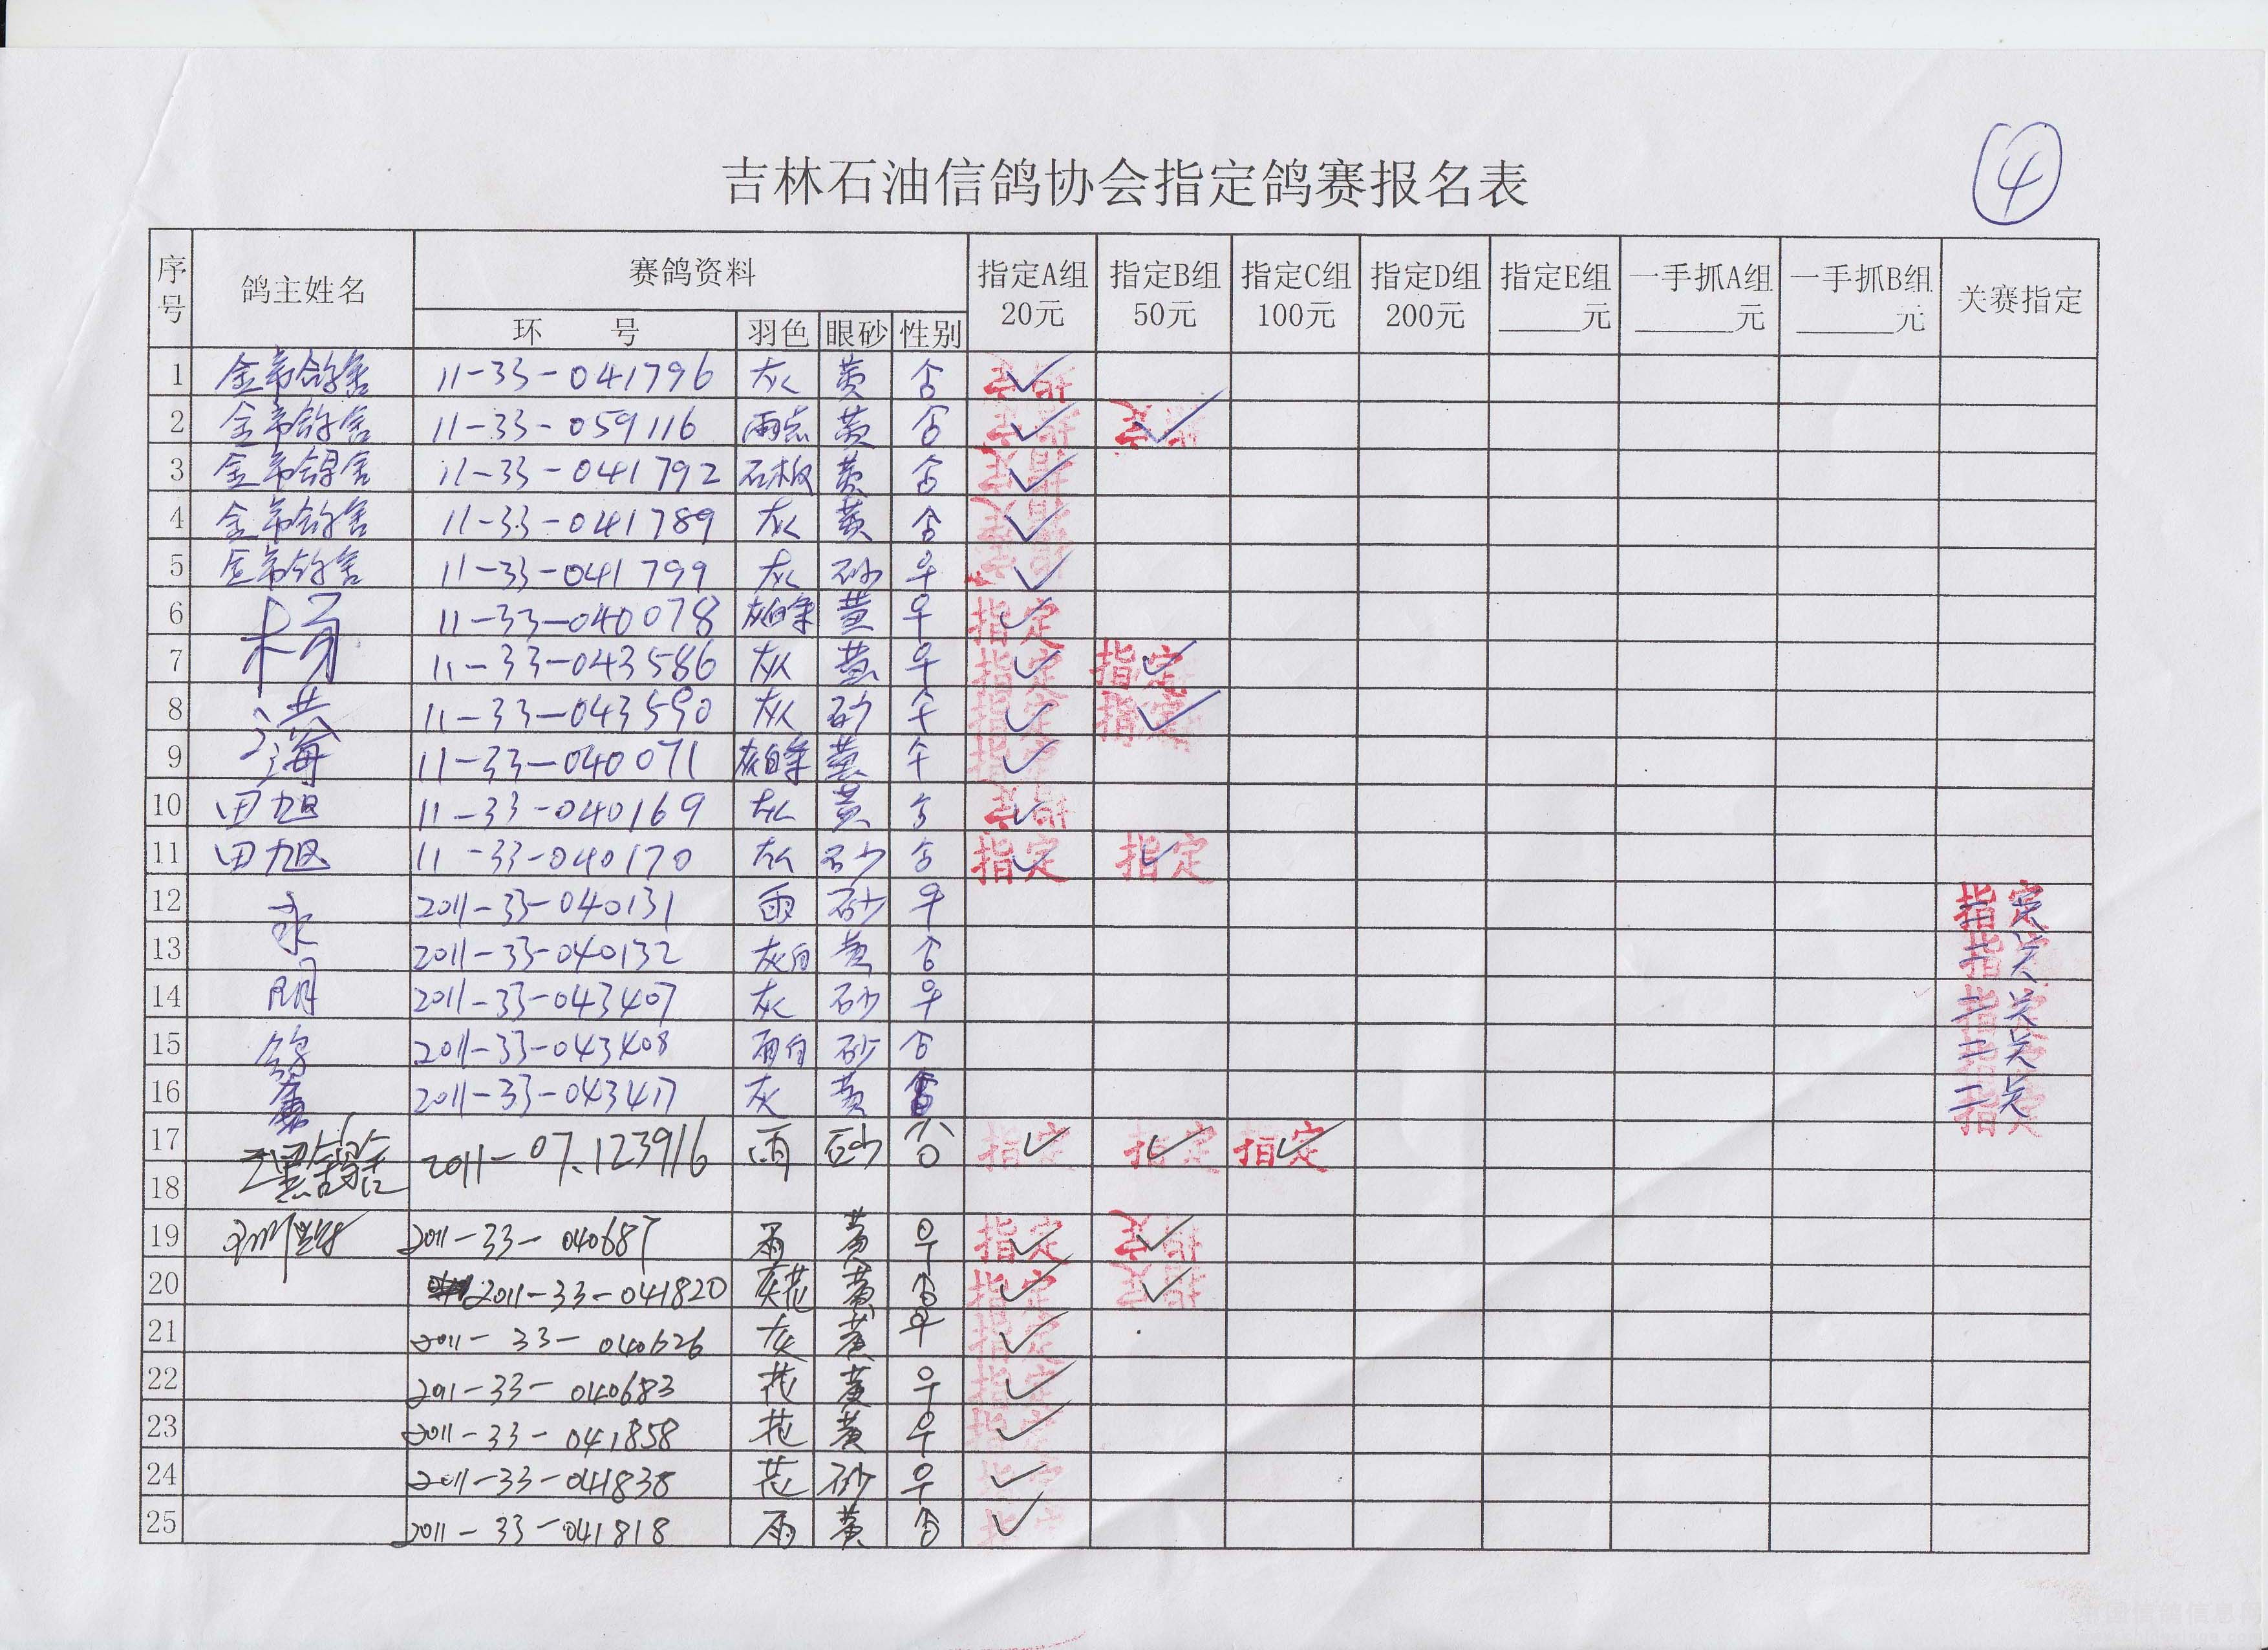 ④
吉林石油信鸽协会指定鸽赛报名表
序号 鸽主姓名 赛鸽资料 指定A组 20元 指定B组 50元 指定C组 100元 指定D组 200元 指定E组 ____元 一手抓A组 ____元 一手抓B组 ____元 关赛指定
环 号 羽色 眼砂 性别
1 金帝鸽舍 11-33-041796 灰 黄 合 指定 ✓
2 金帝鸽舍 11-33-059116 雨点 黄 合 指定 ✓ 指定 ✓
3 金帝鸽舍 11-33-041792 石板 黄 合 指定 ✓
4 金帝鸽舍 11-33-041789 灰 黄 合 指定 ✓
5 金帝鸽舍 11-33-041799 灰 砂 ♀ 指定 ✓
6 杨 11-33-040078 灰白条 黄 ♀ 指定 ✓
7 11-33-043586 灰 黄 ♀ 指定 ✓ 指定 ✓
8 洪 11-33-043590 灰 砂 指定 ✓ 指定 ✓
9 海 11-33-040071 灰白条 黄 指定 ✓
10 田旭 11-33-040169 灰 黄 指定 ✓
11 田旭 11-33-040170 灰 砂 合 指定 ✓ 指定 ✓
12 永 2011-33-040131 雨 砂 ♀ 指定 二关
13 2011-33-040132 灰白 黄 合 指定 二关
14 明 2011-33-043407 灰 砂 ♀ 指定 二关
15 鸽 2011-33-043408 雨白 砂 合 指定 二关
16 2011-33-043417 灰 黄 指定 二关
17 2011-07.123916 雨 砂 指定 ✓ 指定 ✓ 指定 ✓
18
19 2011-33-040687 雨 黄 ♀ 指定 ✓ 指定 ✓
20 2011-33-041820 灰花 黄 合 指定 ✓ 指定 ✓
21 2011-33-040626 灰 黄 ♀ 指定 ✓
22 2011-33-040683 花 黄 ♀ 指定 ✓
23 2011-33-041858 花 黄 ♀ 指定 ✓
24 2011-33-041838 花 砂 ♀ 指定 ✓
25 2011-33-041818 雨 黄 合 指定 ✓